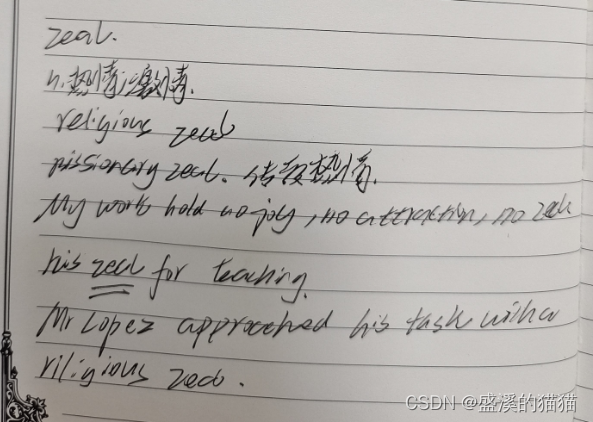 zeal.
n.热情;激情.
religious zeal
missionary zeal. 传教热情.
My work hold no joy, no attraction, no zeal
his zeal for teaching.
Mr Lopez approached his task with a
riligious zeal.
CSDN @盛溪的猫猫